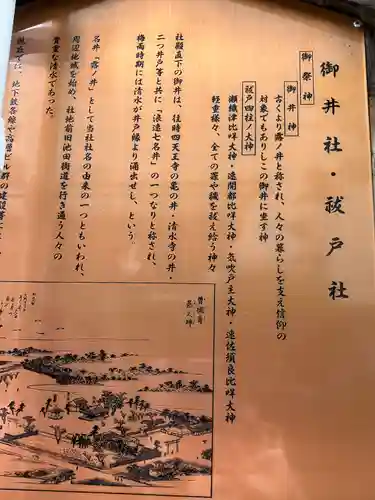 御井社・祓戸社
御祭神
御井神
古くより露ノ井と称され、人々の暮らしを支え信仰の
対象でもありしこの御井に坐す神
祓戸四柱ノ大神
瀬織津比咩大神・速開都比咩大神・気吹戸主大神・速佐須良比咩大神
軽重様々、全ての罪や穢を祓え給う神々
社殿直下の御井は、往時四天王寺の亀の井・清水寺の井・
二つ井戸等と共に「浪速七名井」の一つなりと称され、
梅雨時期には清水が井戸縁より涌出せし、という。
名井『露ノ井』として当社社名の由来の一つともいわれ、
周辺地域を始め、社地前旧池田街道を行き通う人々の
貴重な清水であった。
現在では、地下鉄各線や高層ビル群の建設等に
曽根崎
天神